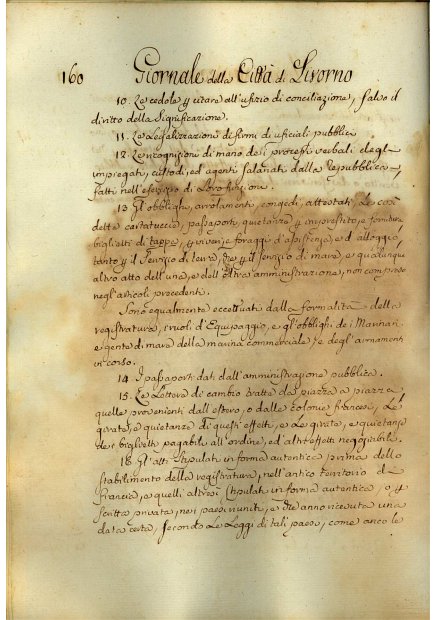 160 Giornale della Città di Livorno
10. Le cedole p citare all'ufizio di conciliazione, salvo il
diritto della Significazione.
11. Le Legalizzazioni di firmi di uficiali pubblici
12. Le ricognizioni di mano de i processi verbali degl'
impiegati, custodi, ed agenti salariati dalla Repubblica,
fatti nell'esercizio di loro funzioni.
13 Gl'obblighi, arrolamenti, congedi, attestati, Le così
dette cartatuccie, passaporti, quietanze p imprestito, e forniture
biglietti di tappe, p viveri, e foraggi d'assistenza, ed alloggio,
tanto p il servizio di terra, che p il servizio di mare, e qualunque
altro atto dell'una, e dell'altra amministrazione, non compreso
negl'articoli precedenti.
Sono egualmente eccettuati dalla formalità della
registratura, i ruoli d'Equipaggio, e gl'obblighi de i Marinari,
e gente di mare della marina commerciale, e degl'armamenti
in corso.
14. I passaporti dati dall'amministrazione pubblica.
15. Le Lettere di cambio tratte da piazza a piazza
quelle provenienti dall'estero, o dalle colonie francesi, Le
girate, e quietanze di questi effetti, e Le girate, e quietanze
de i biglietti pagabili all'ordine, ed altri effetti negoziabili.
16. Gl'atti stipulati in forma autentica prima dello
stabilimento della registratura, nell'antico territorio di
Francia, e quelli altresì stipulati in forma autentica, o p
scritta privata, ne i paesi riuniti, e che anno ricevuta una
data certa, secondo Le Leggi di tali paesi, come anco le